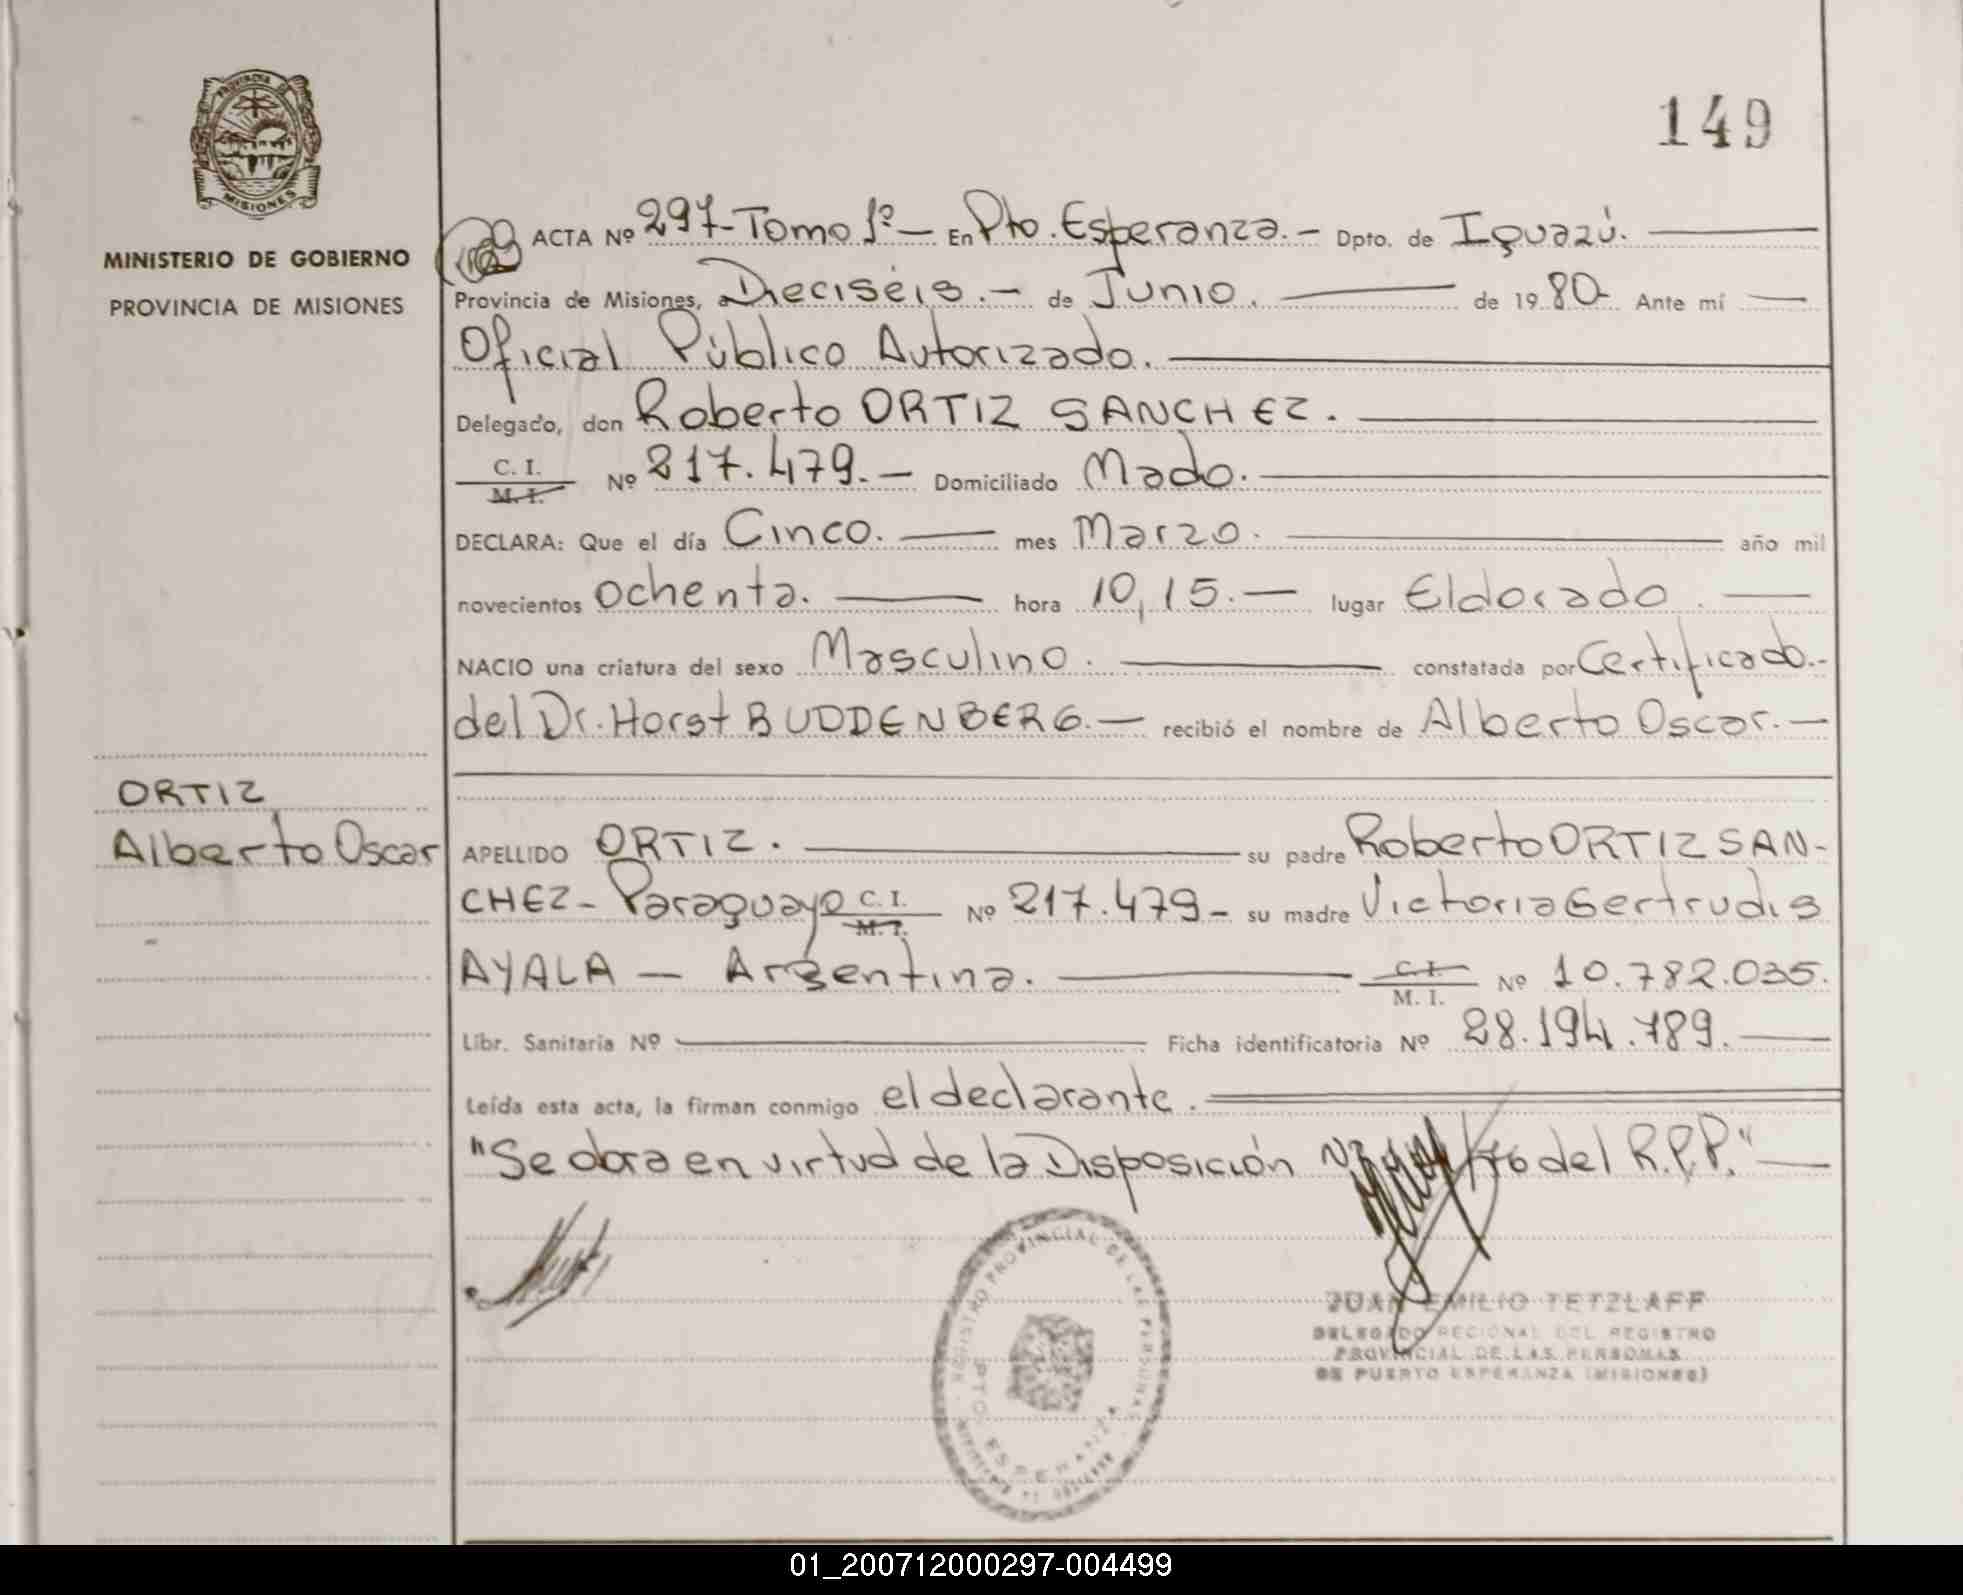 PROVINCIA DE
MISIONES
MINISTERIO DE GOBIERNO
PROVINCIA DE MISIONES
149
ACTA Nº 297-Tomo 1º- En Pto. Esperanza.- Dpto. de Iguazú.
Provincia de Misiones, a Dieciséis.- de Junio. de 19 80- Ante mí
Oficial Público Autorizado.
Delegado, don Roberto ORTIZ SANCHEZ.
C. I.
M. I. Nº 217.479.- Domiciliado Mado.
DECLARA: Que el día Cinco. mes Marzo. año mil
novecientos ochenta. hora 10,15.- lugar Eldorado.
NACIO una criatura del sexo Masculino. constatada por Certificado.-
del Dr. Horst BUDDENBERG.- recibió el nombre de Alberto Oscar.-
ORTIZ
Alberto Oscar
APELLIDO ORTIZ. su padre Roberto ORTIZ SAN-
CHEZ- Paraguayo C. I.
M. I. Nº 217.479- su madre Victoria Gertrudis
AYALA - Argentina. C. I.
M. I. Nº 10.782.035.
Libr. Sanitaria Nº Ficha identificatoria Nº 28.194.789.
Leída esta acta, la firman conmigo el declarante.
"Se labra en virtud de la Disposición Nº /76 del R.P.P."-
REGISTRO PROVINCIAL DE LAS PERSONAS
PTO. ESPERANZA
JUAN EMILIO TETZLAFF
DELEGADO REGIONAL DEL REGISTRO
PROVINCIAL DE LAS PERSONAS
DE PUERTO ESPERANZA (MISIONES)
01_200712000297-004499